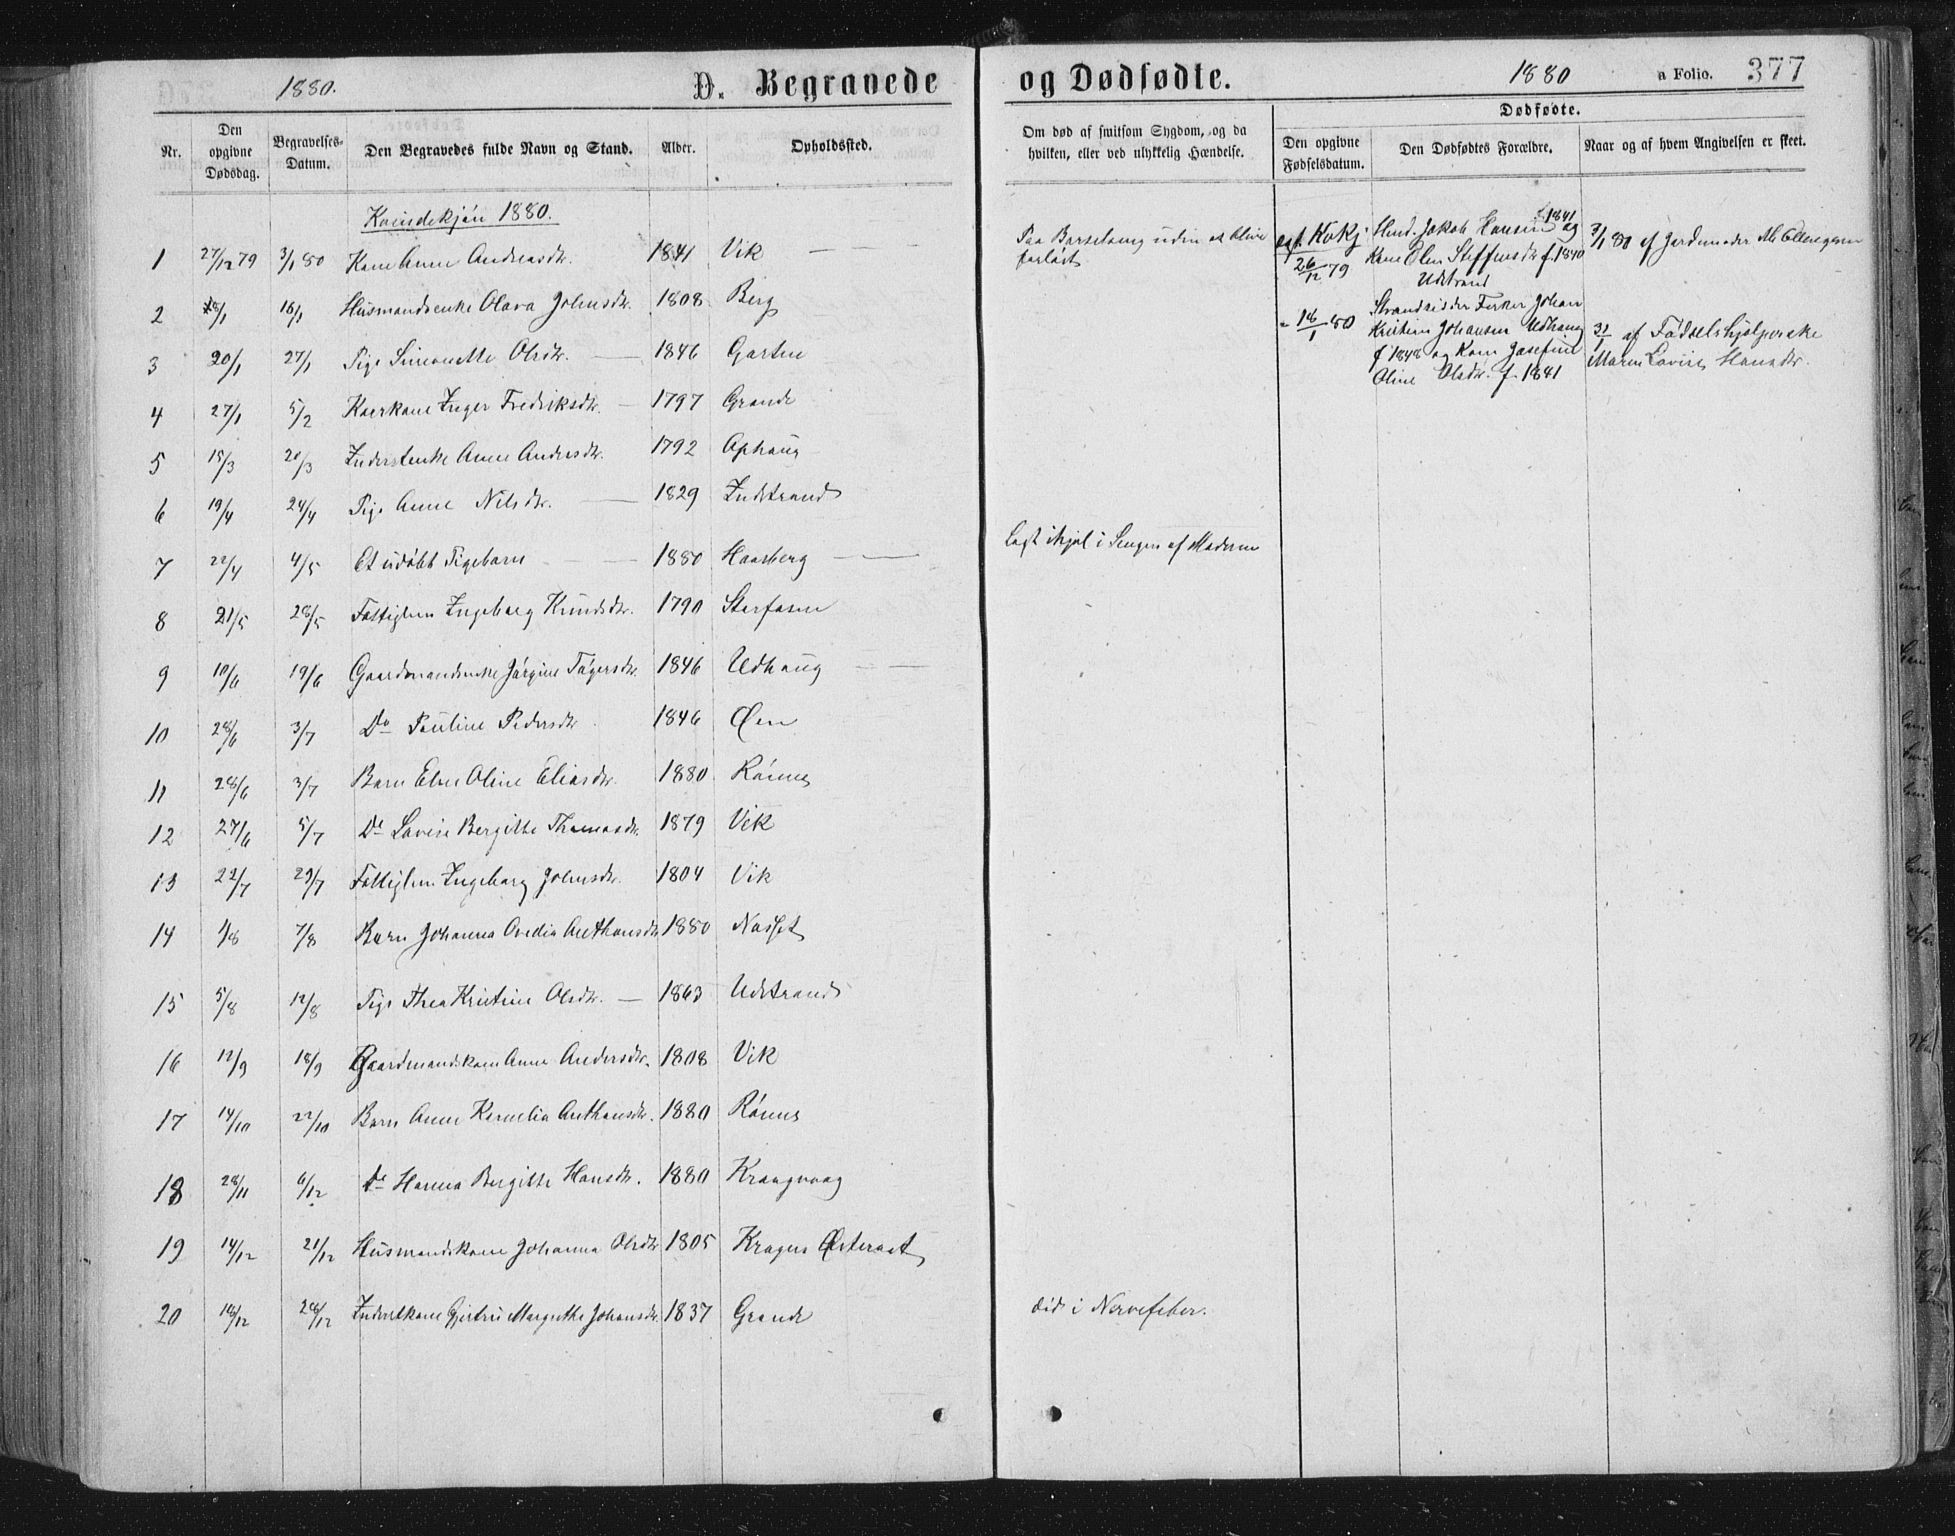 1880.
D. Begravede
og Dødfødte.
1880
a Folio. 377
Nr.
Den opgivne Dødsdag.
Begravelses-Datum.
Den Begravedes fulde Navn og Stand.
Alder.
Opholdssted.
Om død af smitsom Sygdom, og da hvilken, eller ved ulykkelig Hændelse.
Dødfødte.
Den opgivne Fødselsdatum.
Den Dødfødtes Forældre.
Naar og af hvem Angivelsen er skeet.
Kvindekjön 1880.
1 27/12 79 3/1 80 Kone Anne Andreasdr. 1841 Vik
2 18/1 Husmandsenke Olava Johnsdr. 1808 Berg
3 20/1 27/1 Pige Simonette Olsdr. 1846 Garten
4 27/1 5/2 Kaarkone Inger Fredriksdr. 1797 Grande
5 15/3 20/3 Inderstenke Anne Andersdr. 1792 Ophaug
6 19/4 24/4 Pige Anne Nilsdr. 1829 Indstrand
7 22/4 4/5 Et udøbt Pigebarn 1880 Haasberg
8 21/5 28/5 Fattiglem Ingeborg Knudsdr. 1790 Storfosen
9 10/6 19/6 Gaardmandsenke Jörgine 1846 Udhaug
10 28/6 3/7 Do Pauline Pedersdr. 1846 Øen
11 28/6 3/7 Barn Elen Oline Eliasdr. 1880 Rönne
12 27/6 5/7 Do Lovise Bergitte Thomasdr. 1879 Vik
13 22/7 29/7 Fattiglem Ingeborg Johnsdr. 1804 Vik
14 1/8 7/8 Barn Johanna Ovedia Anthonsdr. 1880 Næsset
15 5/8 12/8 Pige Thea Kristine Olsdr. 1863 Udstrand
16 12/9 18/9 Gaardmandskone Anne Andersdr. 1808 Vik
17 14/10 22/10 Barn Anne Kornelia Anthonsdr. 1880 Rönne
18 28/11 6/12 Do Hanna Bergitte Hansdr. 1880 Kraagvaag
19 14/12 21/12 Husmandskone Johanna Olsdr. 1805 Østeraat
20 18/12 28/12 Inderstkone Gjertru Margrethe Johansdr. 1837 Grande
Paa Barselseng uden at blive
forløst
lagt ihjel i Sengen af Moderen
död i Nervefeber.
egt. Kvkj
26/12 79
Husm. Jakob Hansen f. 1841 og
Kone Elen Steffensdr. f. 1840
Udstrand
3/1 80 af Jordemoder
" 18/1 80
Strandsidder Fisker Johan
Kristian Johansen Udhaug
f. 1848 og Kone Josefine
Oline Olsdr. f. 1841
31/1 af Fødselshjelperske
Maren Lovise Hansdr.